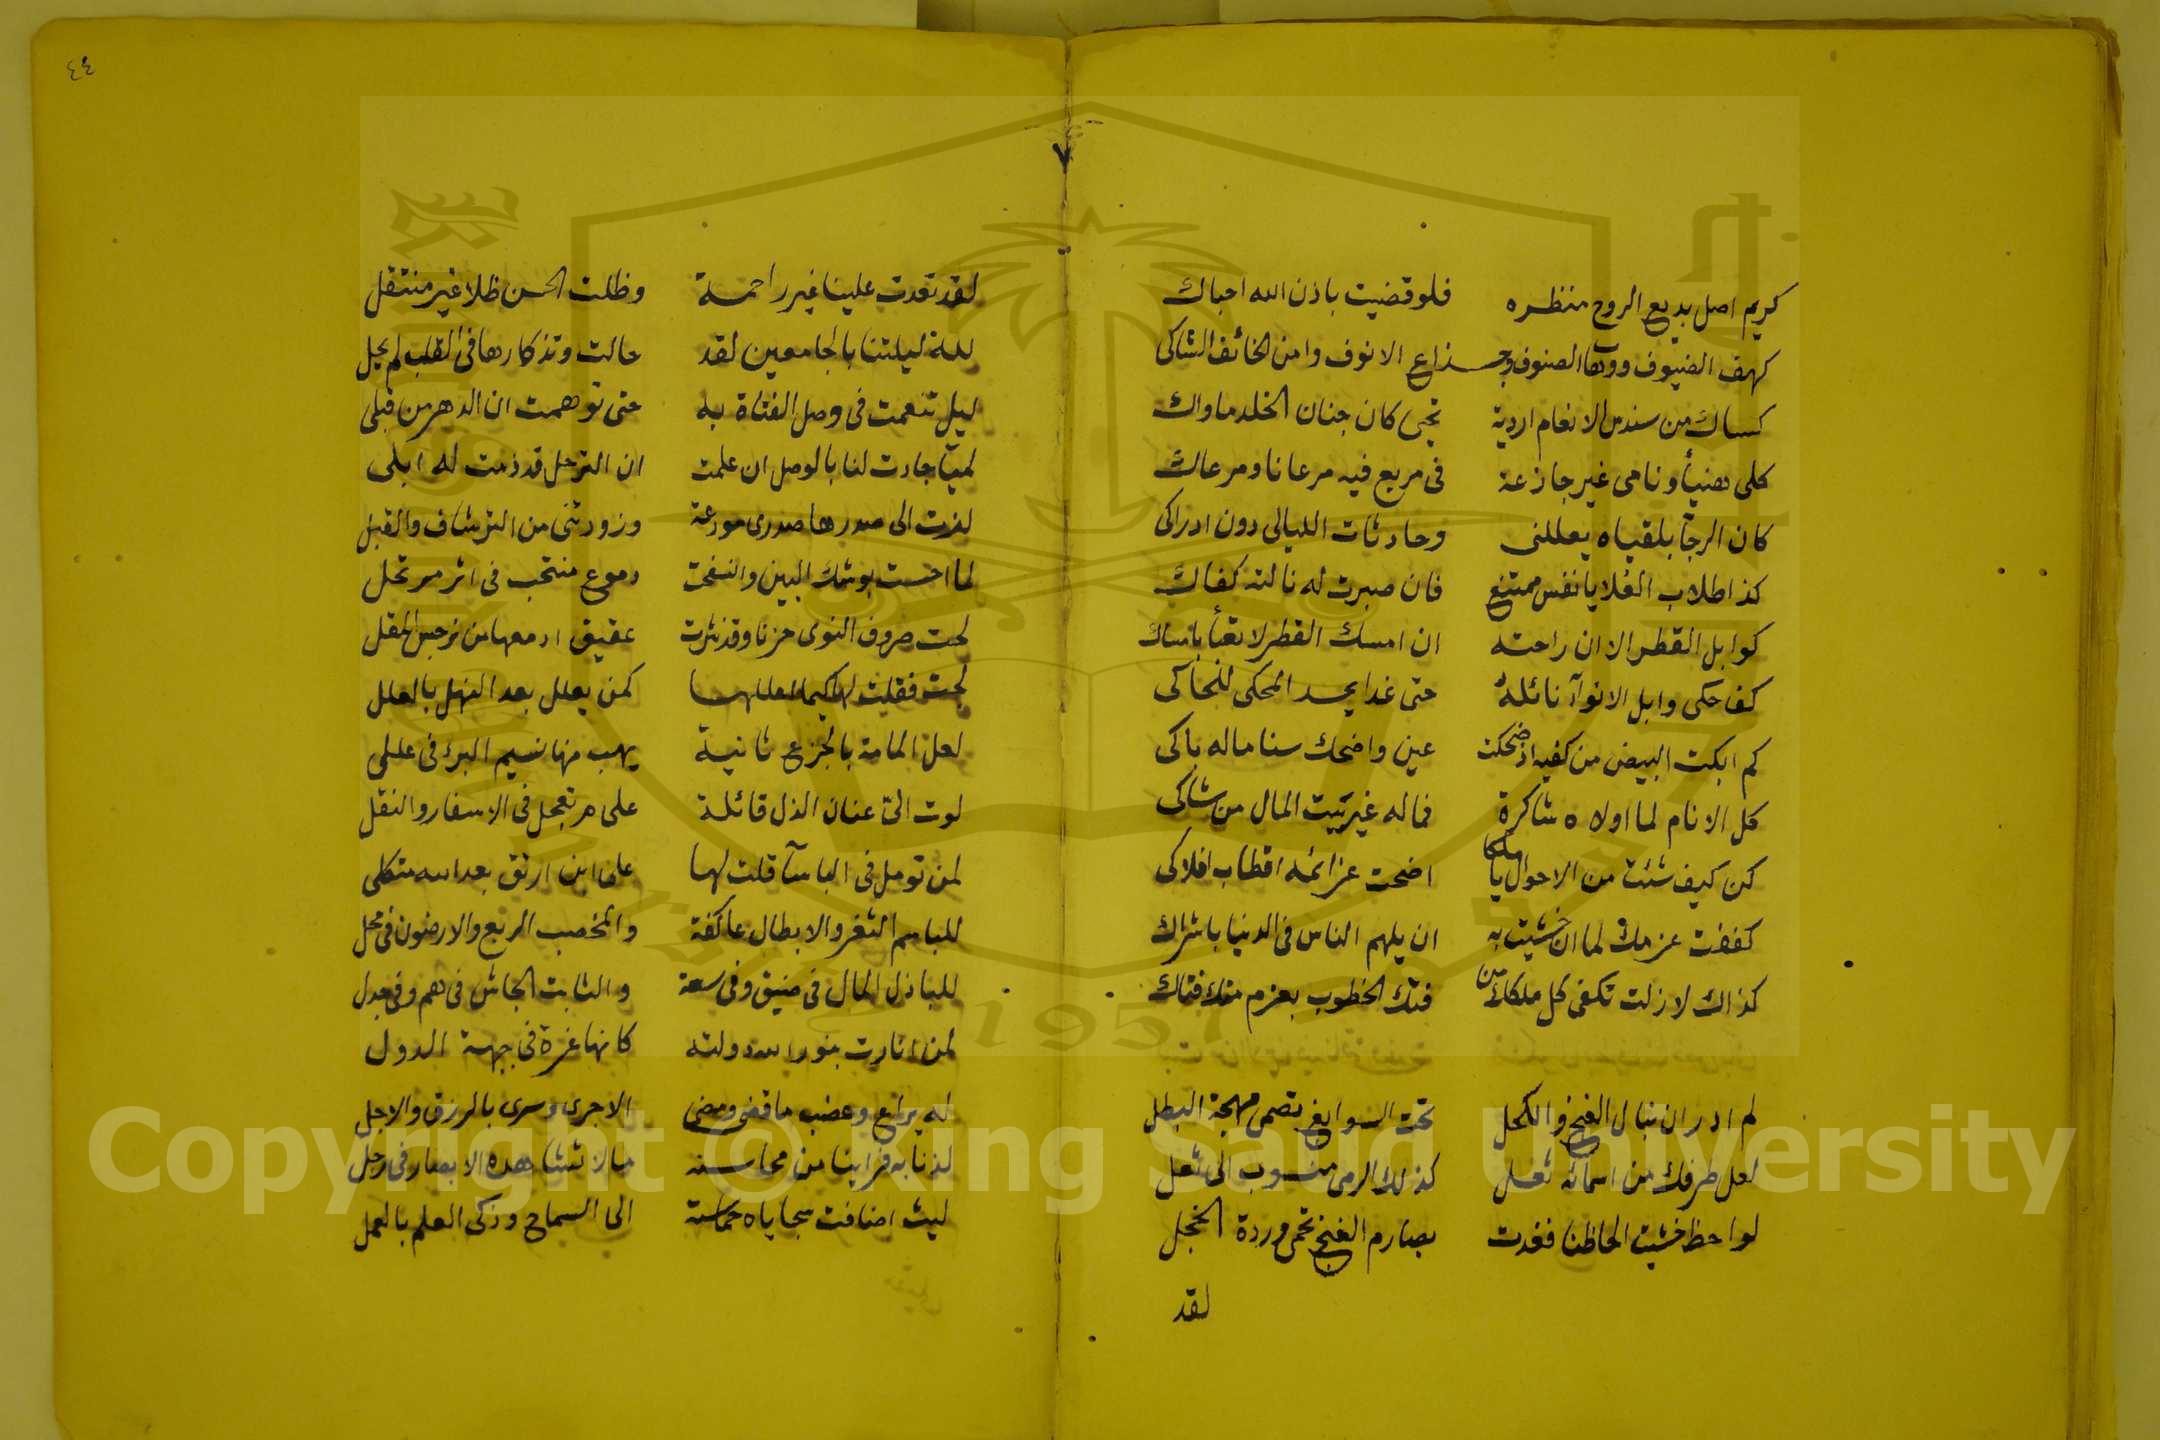 كريم اصل بديع الروح منظره فلو قضيت باذن الله احباك
كهف الضيوف ووهاب الصنوف وجذاع الانوف وامن الخائف الشاكى
كساك من سندس الانعام اردية تجى كان جنان الخلد ماواك
كلى هنيأ ونامى غير جازعة فى مربع فيه مرعانا ومرعاك
كان الرجآ بلقياه يعللنى وحادثات الليالى دون ادراكى
كذا طلاب العلا يا نفس ممتنع فان صبرت له نالته كفاك
كوابل القطر الا ان راحته ان امسك القطر لا تعبأ بامساك
كف حكى وابل الانوآ نائله حتى غدا يحسد المحكى للحاكى
كم ابكت البيض من كفيه اذ ضحكت عين واضحك سنا ماله باكى
كل الانام لما اولاه شاكرة فماله غير بيت المال من شاكى
كن كيف شئت من الاحوال يا ملكا اضحت عزائمه اقطاب افلاكى
كففت عزمك لما ان خشيت به ان يلهم الناس فى الدنيا باشراك
كذاك لا زلت تكفى كل ملكك من فتك الخطوب بعزم منك فتاك
لم ادر ان نبال الغنج والكحل تحت السوابغ تصمى مهجة البطل
لعل طرفك من اسمائه ثعل كذلك الرمى منسوب الى ثعل
لواحظ خشيت الحاظنا فغدت بصارم الغنج تحمى وردة الخجل
لقد
٤٤
٧
لقد تعدت علينا غير راحمة وظلت الحسن ظلا غير منتقل
لله ليلتنا بالجامعين لقد حالت وتذكارها فى القلب لم يحل
ليل تنعمت فى وصل الفتاة به حتى توهمت ان الدهر من قبلى
لميآ جادت لنا بالوصل ان علمت ان الترحل قد زمت له ابلى
لزت الى صدرها صدرى مودعة وزودتنى من الترشاف والقبل
لما احست بوشك البين وانسفحت دموع منتحب فى اثر مرتحل
لحت صروف النوى حزنا وقد نثرت عقيق ادمعها من نرجس المقل
لجت فقلت لها كيما اعللها كمن يعلل بعد النهل بالعلل
لعل المامة بالجزع ثانية يهب منها نسيم البرء فى عللى
لوت الى عنان الذل قائلة على م تعجل فى الاسفار والنقل
لمن تومل فى الباسآ قلت لها على ابن ارتق بعد الله متكلى
للباسم الثغر والابطال عاكفة والمخصب الربع والارضون فى محل
للباذل المال فى ضيق وفى سعة والثابت الجاش فى هم وفى جدل
لمن انارت بنور الله دولته كانها غرة فى جبهة الدول
له يراع وعضب ما قضى ومضى الا جرى وسرى بالرزق والاجل
لذنا به فراينا من محاسنه ما لا تشاهده الابصار فى رجل
ليث اضافت سجاياه حماسته الى السماح وزكى العلم بالعمل
1957
Copyright © King Saud University